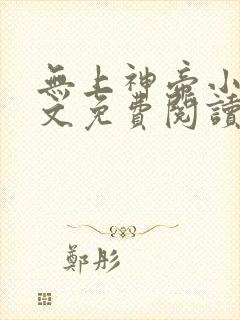 無上神帝小
文免費閱讀
鄭彤